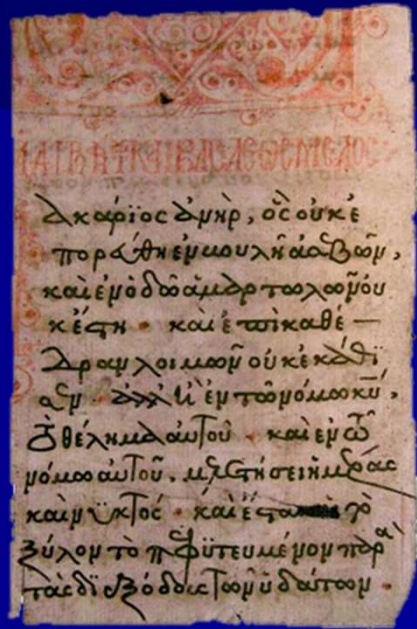 ΚΑΙ ΒΑCΙΛΕΩC ΜΕΛΟC
ακάρϊος ἀνὴρ, ὃς οὐκ ἐ
πορεύθη ἐν βουλῆ ἀσεβῶν,
καὶ ἐν ὁδῶ ἁμαρτωλῶν οὐ
κ ἔστη · καὶ ἐπὶ καθέ
δραν λοιμῶν οὐκ ἐκάθϊ
σεν · ἀλλ' ἢ ἐν τῶ νόμω κυ̅,
τὸ θέλημα αὐτοῦ · καὶ ἐν τῶ
νόμω αὐτοῦ. μελετήσει ἡμέρας
καὶ νϋκτός · καὶ ἔσται τὸ
ξύλον τὸ πεφϋτευμένον παρὰ
τὰς δϊεξόδους τῶν ὑδάτων ·